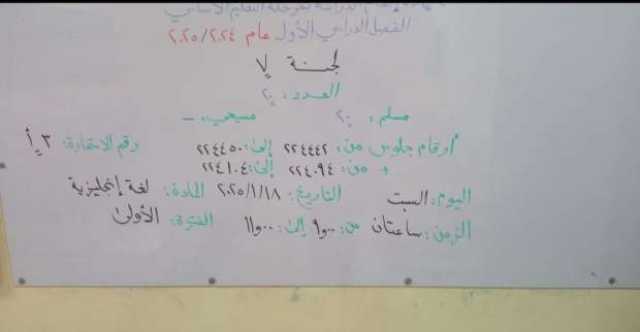 إتمام الدراسة بمرحلة التعليم الأساسي
الفصل الدراسي الأول عام ٢٠٢٥/٢٠٢٤
لجنة ٧
العدد: ٢٠
مسلم: ٢٠ مسيحي: -
أرقام جلوس من: ٢٢٤٤٤٢ إلى: ٢٢٤٤٥٠ رقم الاستمارة: ٣ أ
و من: ٢٢٤٠٩٤ إلى: ٢٢٤١٠٤
اليوم: السبت التاريخ: ٢٠٢٥/١/١٨ المادة: لغة إنجليزية
الزمن: ساعتان من: ٩٫٠٠ إلى: ١١٫٠٠ الفترة: الأولى